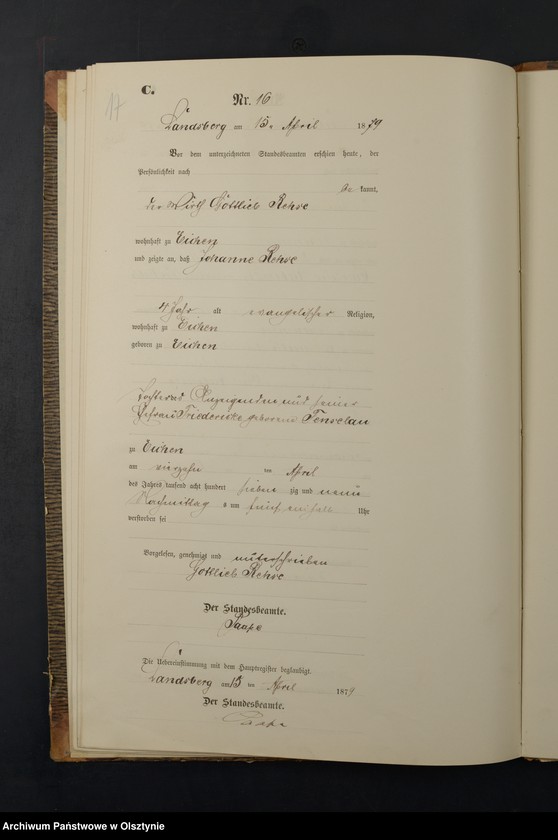 17
C.
Nr. 16
Landsberg am 15. April 1879
Vor dem unterzeichneten Standesbeamten erschien heute, der
Persönlichkeit nach
be kannt,
der Wirth Gottlieb Rehse
wohnhaft zu Eichen
und zeigte an, daß Johanne Rehse
4 Jahr alt evangelischer Religion,
wohnhaft zu Eichen
geboren zu Eichen
Tochter des Anzeigenden und seiner
Ehefrau Friederike geborene Tenselau
zu Eichen
am vierzehn ten April
des Jahres tausend acht hundert sieben zig und neun
Nachmittag s um fünf einhalb Uhr
verstorben sei
Vorgelesen, genehmigt und unterschrieben
Gottlieb Rehse
Der Standesbeamte.
Die Uebereinstimmung mit dem Hauptregister beglaubigt.
Landsberg am 15 ten April 1879
Der Standesbeamte.
Archiwum Państwowe w Olsztynie